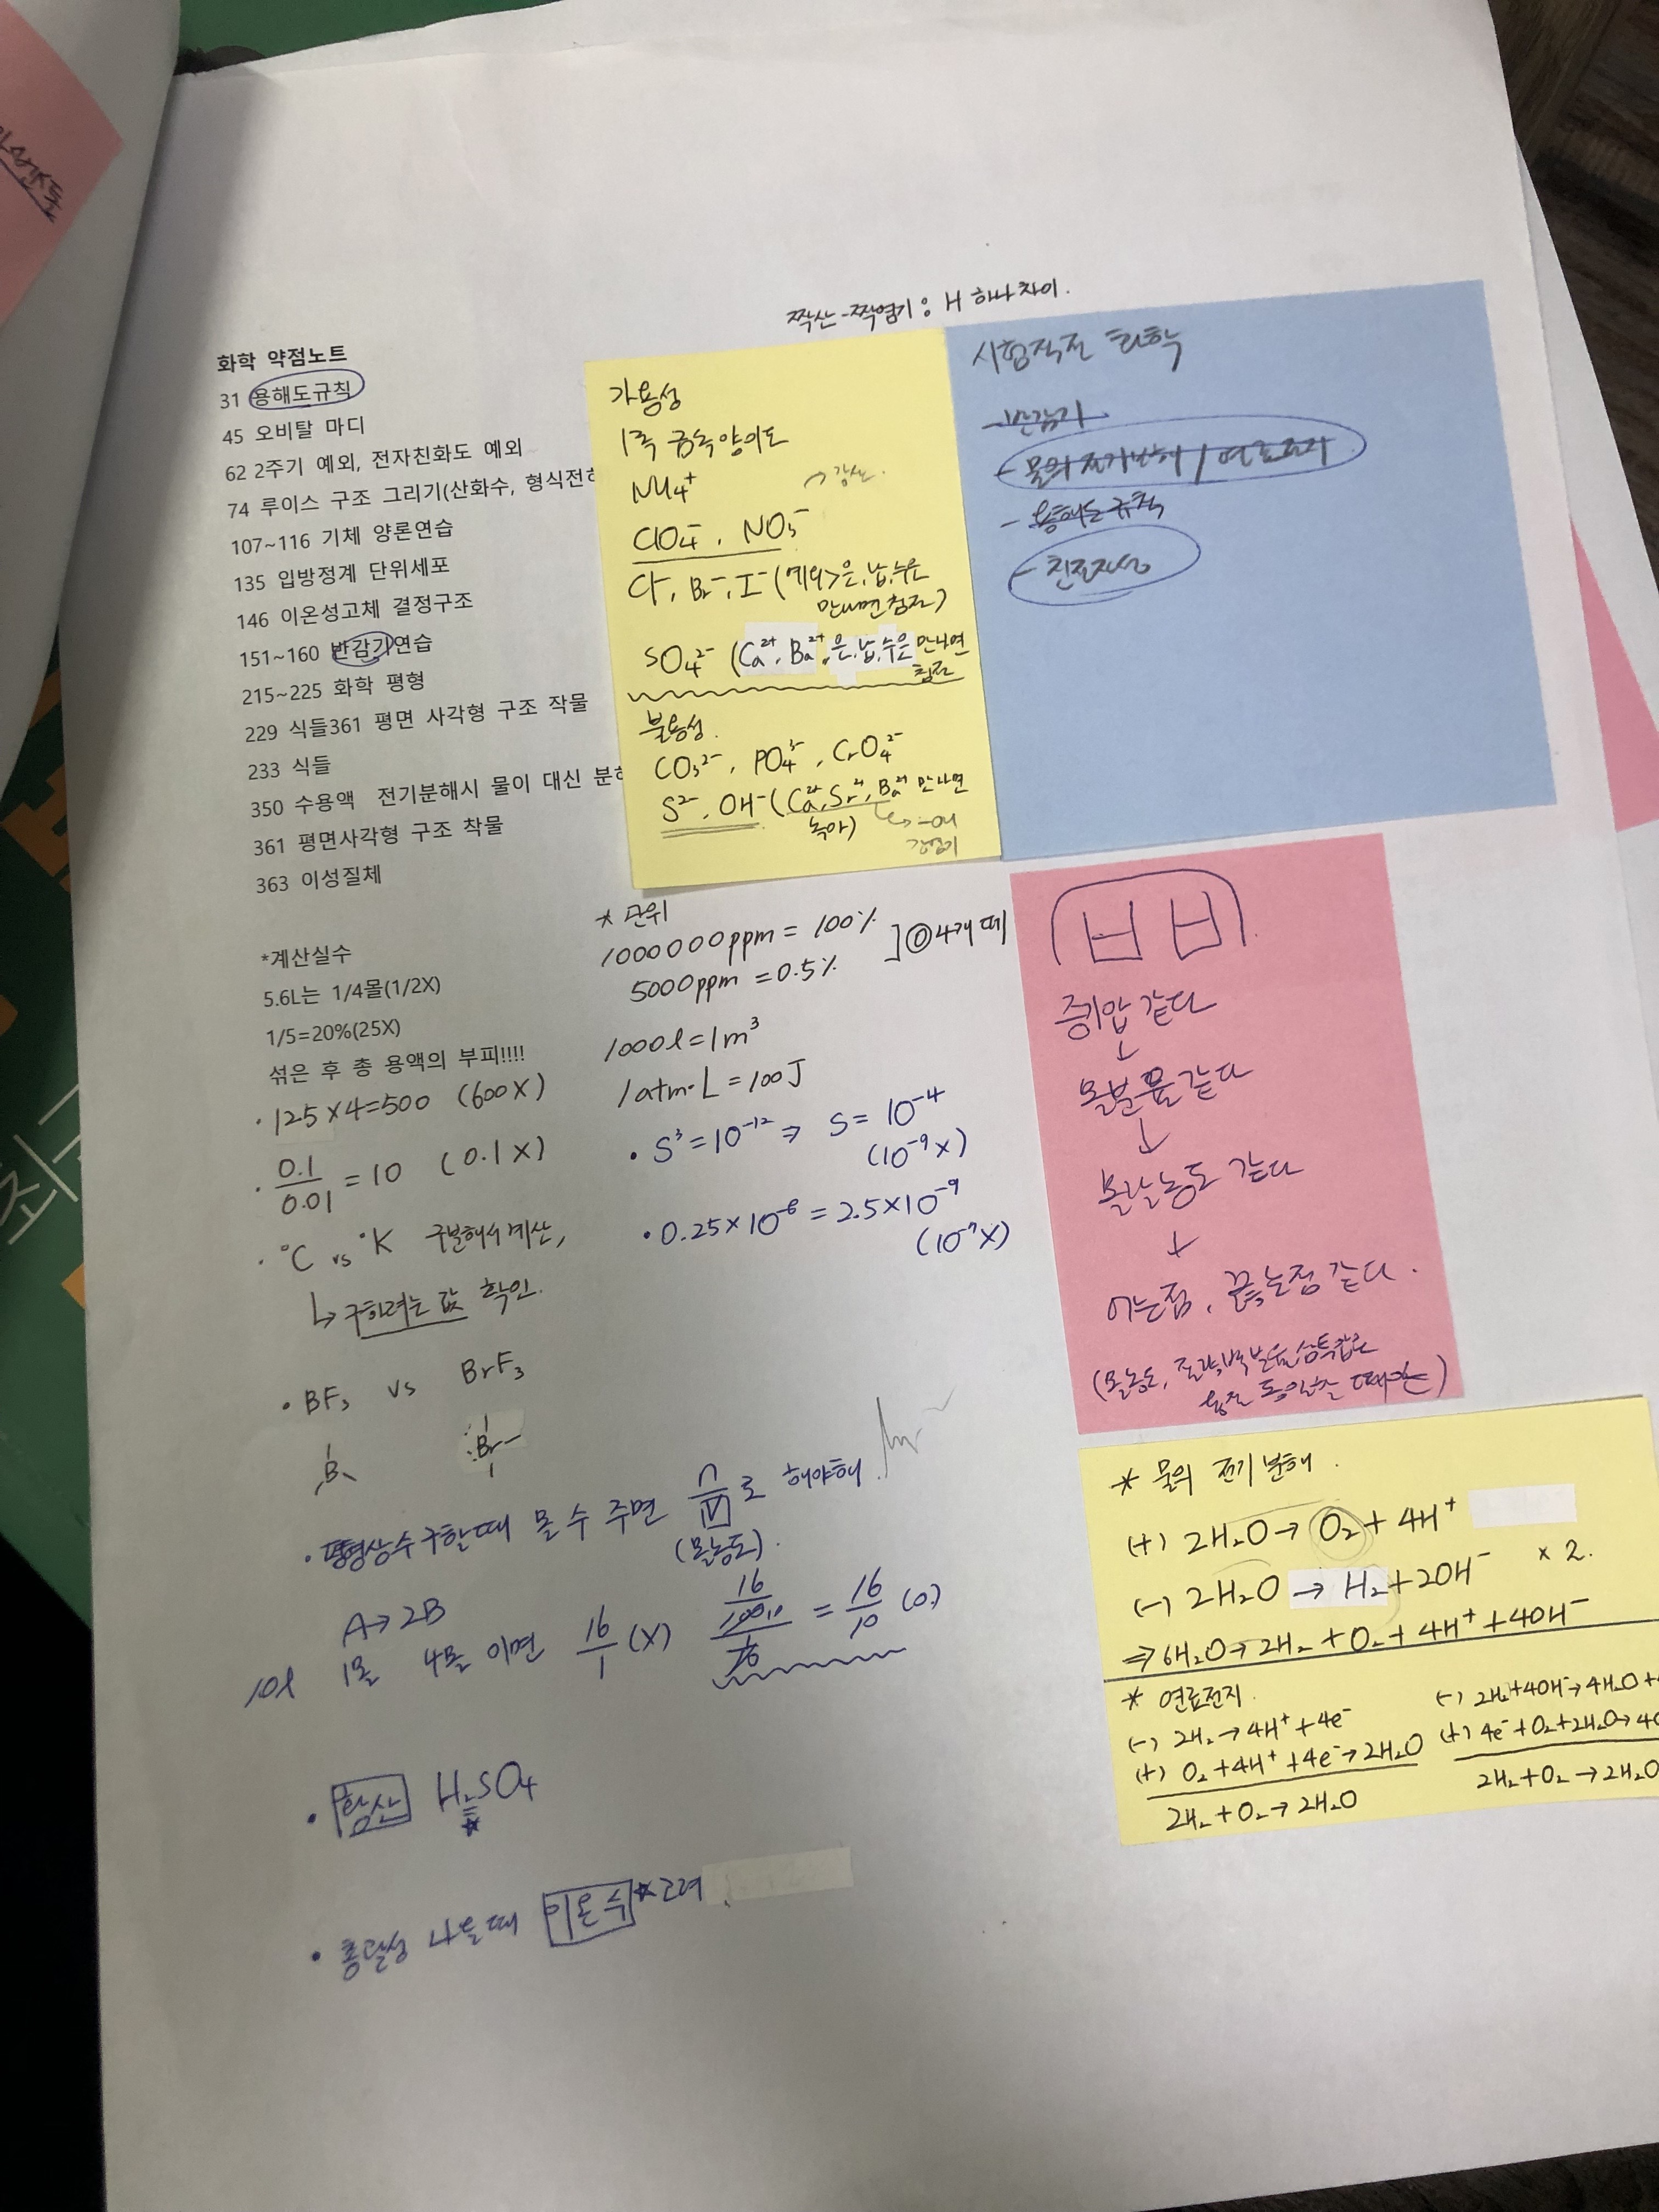 짝산-짝염기: H 하나 차이.
화학 약점노트
31 용해도규칙
45 오비탈 마디
62 2주기 예외, 전자친화도 예외
74 루이스 구조 그리기(산화수, 형식전하
107~116 기체 양론연습
135 입방정계 단위세포
146 이온성고체 결정구조
151~160 반감기연습
215~225 화학 평형
229 식들361 평면 사각형 구조 작물
233 식들
350 수용액 전기분해시 물이 대신 분해
361 평면사각형 구조 착물
363 이성질체
*계산실수
5.6L는 1/4몰(1/2X)
1/5=20%(25X)
섞은 후 총 용액의 부피!!!!
· 125×4=500 (600X)
· 0.1/0.01 = 10 (0.1X)
· °C vs °K 구분해서 계산,
↳ 구하려는 값 확인.
· BF₃ vs BrF₃
B Br
· 평형상수 구할때 몰수 주면 n/V로 해야해.
(몰농도).
A→2B
10l 1몰 4몰 이면 16/1 (X) = 16/10 (O)
· 황산 H₂SO₄
· 총괄성 나올때 이온수 * 고려.
가용성
1족 금속양이온
NH₄⁺
→강산.
ClO₄⁻, NO₃⁻
Cl⁻, Br⁻, I⁻ (예외>은,납,수은
만나면 침전)
SO₄²⁻ (Ca²⁺, Ba²⁺, 은,납,수은 만나면
침전
불용성.
CO₃²⁻, PO₄³⁻, CrO₄²⁻
S²⁻, OH⁻ (Ca²⁺, Sr²⁺, Ba²⁺ 만나면
녹아)
→-OH
강염기
시험직전 화학
- 반감기
- 물의 전기분해 / 연료전지
- 용해도 규칙
- 친전자성
* 단위
1000000ppm = 100%
5000ppm = 0.5%
] ⓪ 4개 떼
1000l = 1m³
1atm·L = 100J
· S³ = 10⁻¹² ⇒ S = 10⁻⁴
(10⁻⁹X)
· 0.25×10⁻⁸ = 2.5×10⁻⁹
(10⁻⁷X)
증기압 같다
↓
몰분율 같다
↓
몰랄농도 같다
↓
어는점, 끓는점 같다.
(몰농도, 질량백분율, 삼투압은
용질 동일할 때에만)
* 물의 전기 분해.
(+) 2H₂O → O₂ + 4H⁺
(-) 2H₂O → H₂ + 2OH⁻ ×2.
⇒ 6H₂O → 2H₂ + O₂ + 4H⁺ + 4OH⁻
* 연료전지.
(-) 2H₂ → 4H⁺ + 4e⁻
(+) O₂ + 4H⁺ + 4e⁻ → 2H₂O
2H₂ + O₂ → 2H₂O
(-) 2H₂ + 4OH⁻ → 4H₂O +
(+) 4e⁻ + O₂ + 2H₂O → 4O
2H₂ + O₂ → 2H₂O